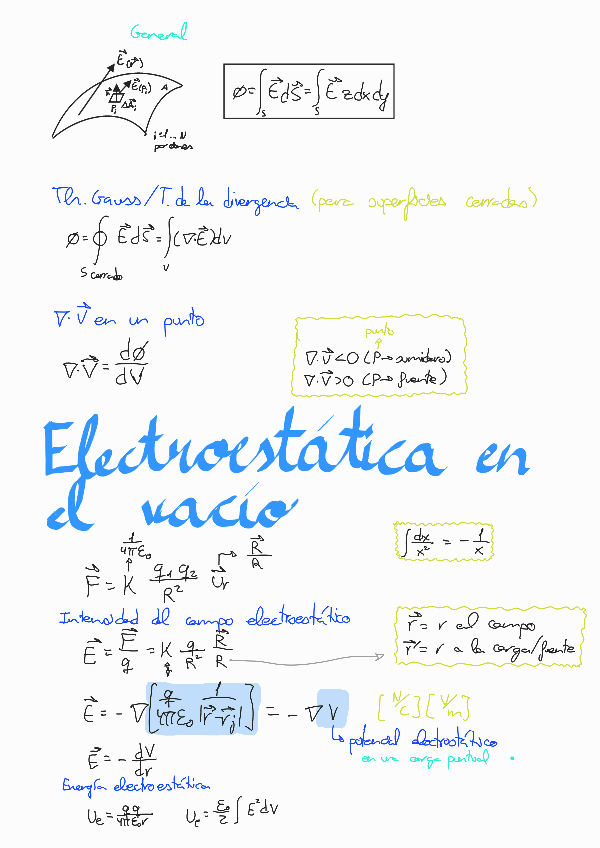 General
E⃗(r⃗)
E⃗(Pᵢ)
A
Pᵢ ΔA⃗ᵢ
i=1...N
porciones
ϕ=∫_S E⃗dS⃗=∫_S E⃗ z dxdy
Th. Gauss/T. de la divergencia (para superficies cerradas)
ϕ=∮_{S cerrado} E⃗dS⃗=∫_V(∇·E⃗)dV
∇·V⃗ en un punto
∇·V⃗ = dϕ/dV
punto
↑
∇·V⃗<0 (P→sumidero)
∇·V⃗>0 (P→fuente)
Electroestática en
el vacío
1/4πε₀
R⃗/R
F⃗ = K q₁q₂/R² U⃗r
∫dx/x² = -1/x
Intensidad del campo electroestático
E⃗ = F⃗/q = K q/R² R⃗/R
q
r⃗ = r al campo
r⃗' = r a la carga/fuente
E⃗ = -∇[q/4πε₀ 1/|r⃗-r⃗ⱼ|] = -∇V [N/C][V/m]
↳potencial electrostático
en una carga puntual
E⃗ = -dV/dr
Energía electroestática
Ue = qq/4πε₀r Ue = ε₀/2 ∫E²dV